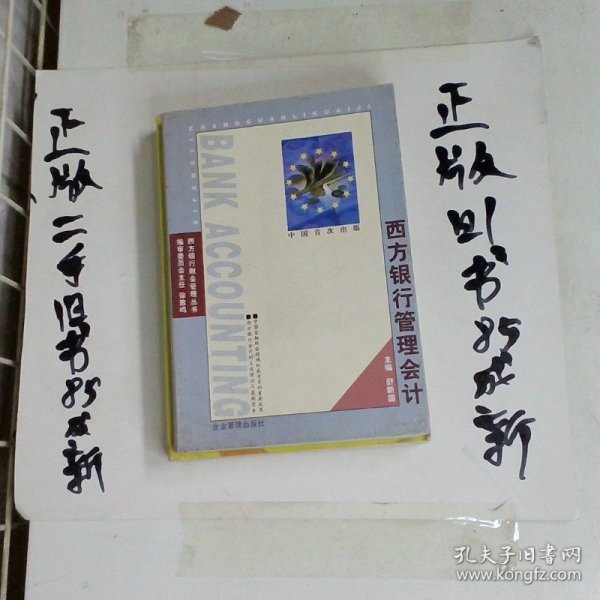 正版二手旧书85成新
XIFANGYINHANGGUANLIKUAIJI
BANK ACCOUNTING
中国首次出版
西方银行管理会计
主编 舒新国
西方银行财会管理丛书
编审委员会主任 徐放鸣
企业管理出版社
正版旧书85成新
孔夫子旧书网
www.kongfz.com